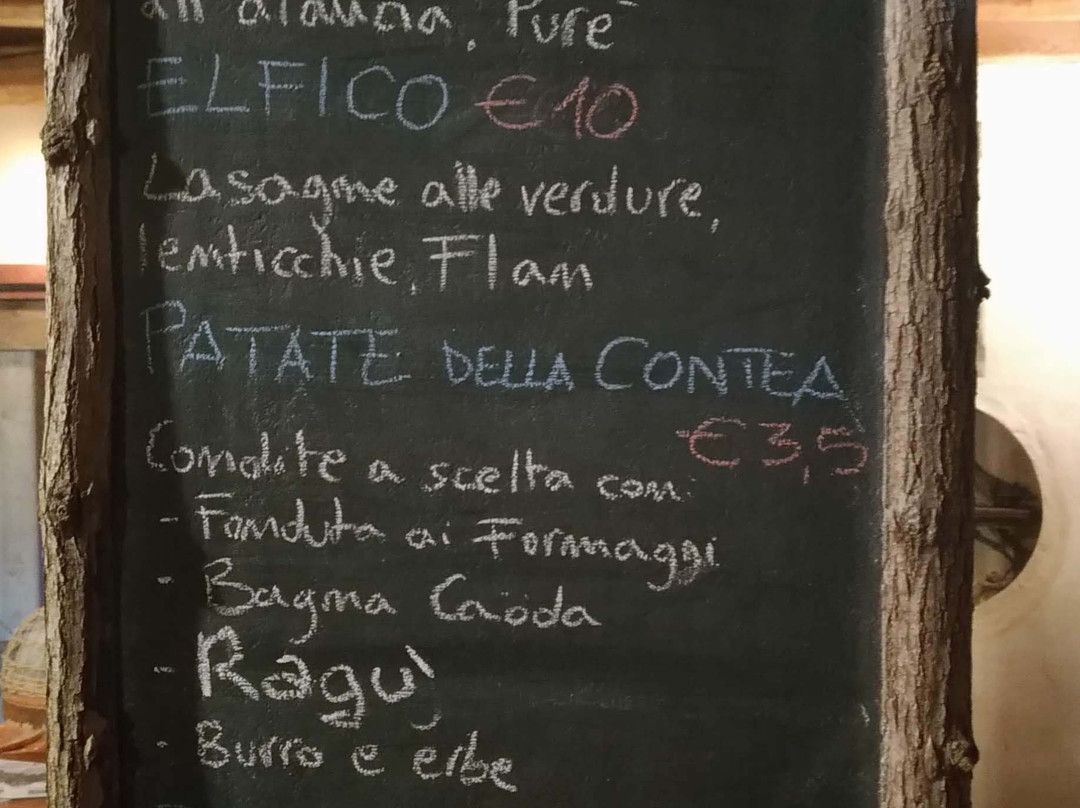 all'arancia, Purè
ELFICO €10
Lasagne alle verdure,
lenticchie, Flan
PATATE DELLA CONTEA
€3,5
Condite a scelta con:
- Fonduta ai Formaggi
- Bagna Caöda
- Ragù
- Burro e erbe